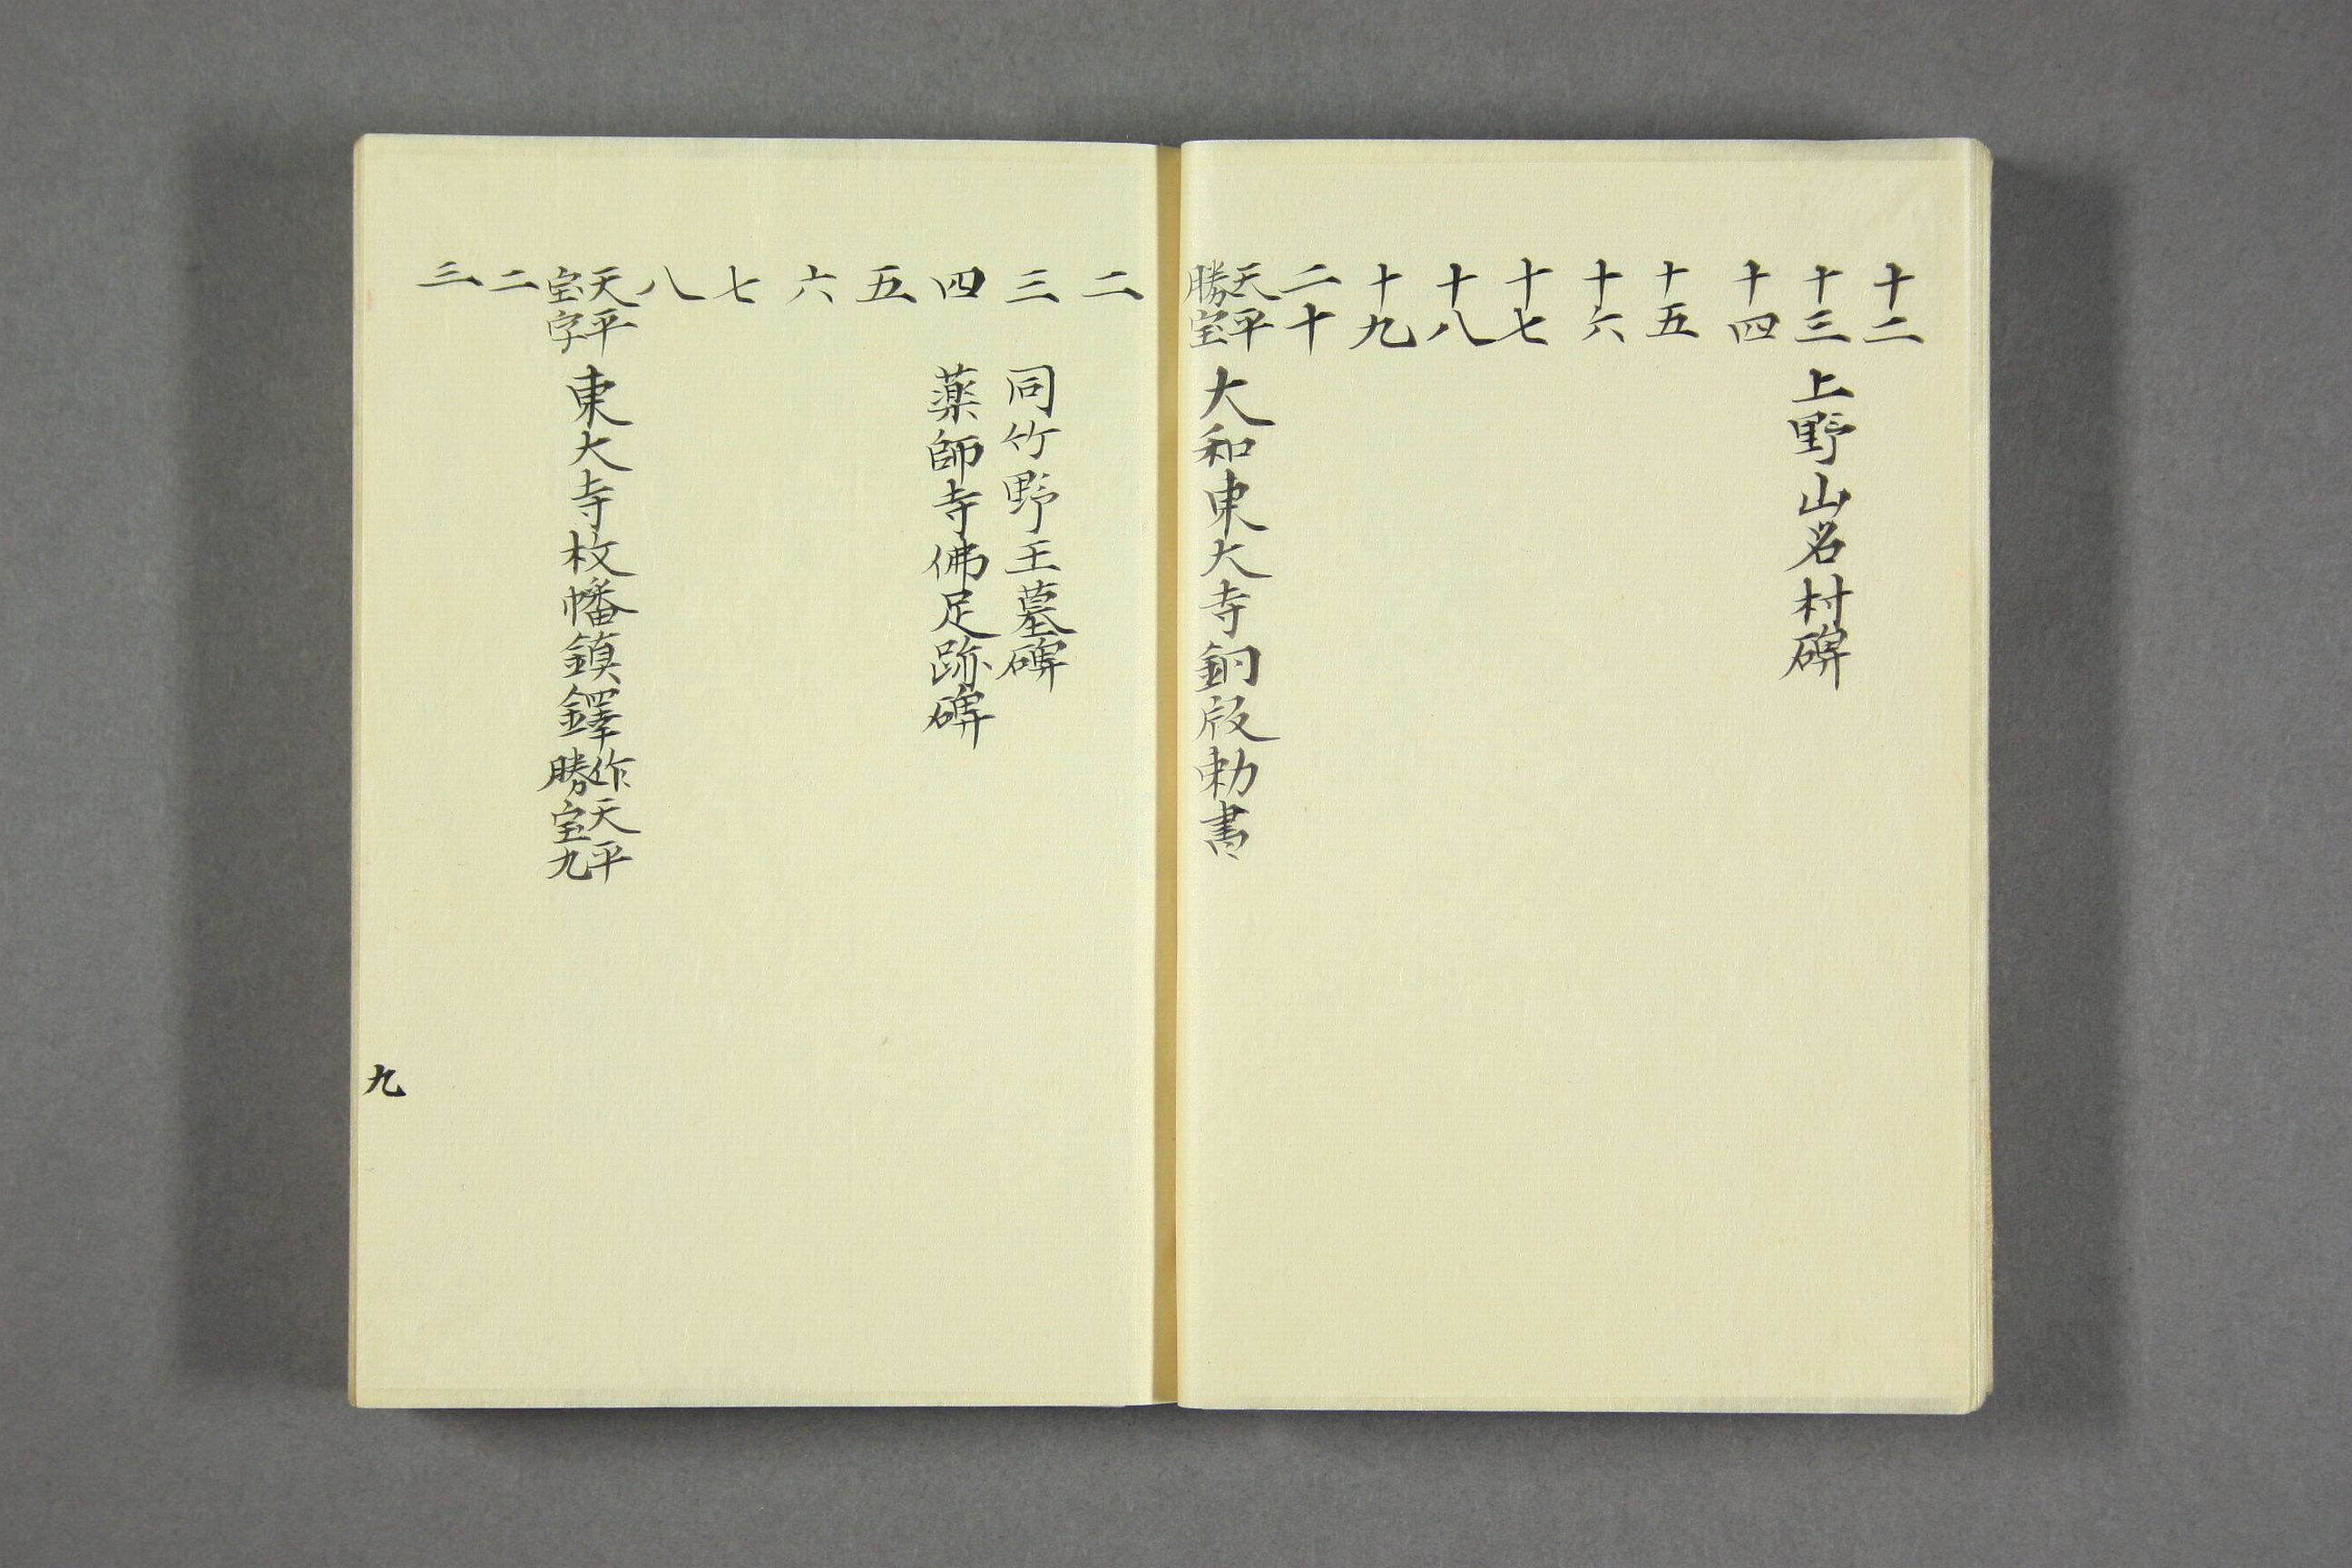 十二
十三 上野山名村碑
十四
十五
十六
十七
十八
十九
二十
天平勝宝 大和東大寺銅版勅書
二
三 同竹野王墓碑
四 薬師寺佛足跡碑
五
六
七
八
天平宝字 東大寺枚幡鎮鐸作天平勝宝九
二
三
九